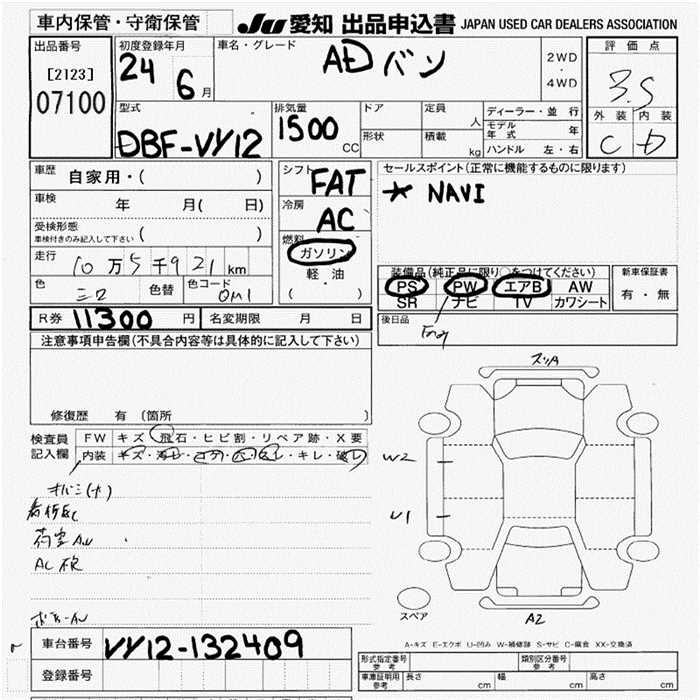 車内保管・守衛保管
JU 愛知 出品申込書 JAPAN USED CAR DEALERS ASSOCIATION
出品番号
[2123]
07100
初度登録年月
24 6月
車名・グレード
AD バン
2WD
・
4WD
評価点
3.5
外装 内装
C D
型式
DBF-VY12
排気量
1500 CC
ドア
形状
定員 人
積載 kg
ディーラー・並行
モデル年式 年
ハンドル 左・右
車歴 自家用・( )
車検 年 月( 日)
受検形態
車検付きのみ記入して下さい ( )
走行 10万5千921km
色 シロ 色替 色コード QM1
シフト FAT
冷房 AC
燃料
ガソリン
軽・油
( ・ )
セールスポイント(正常に機能するものに限ります)
★ NAVI
装備品(純正品に限り○をつけてください)
PS PW エアB AW
SR ナビ TV カワシート
新車保証書
有・無
R券 11300 円 名変期限 月 日
後日品
注意事項申告欄(不具合内容等は具体的に記入して下さい)
修復歴 有 (箇所 )
検査員記入欄
FW キズ・飛石・ヒビ割・リペア跡・X要
内装 キズ・汚レ・コゲ・穴・スレ・キレ・破レ
荷室AU
W2
U1
A2
スペア
A-キズ E-エクボ U-凹み W-補修跡 S-サビ C-腐食 XX-交換済
車台番号 VY12-132409
登録番号
形式指定番号 参考
類別区分番号 参考
車庫証明用 参考 長さ cm 幅 cm 高さ cm